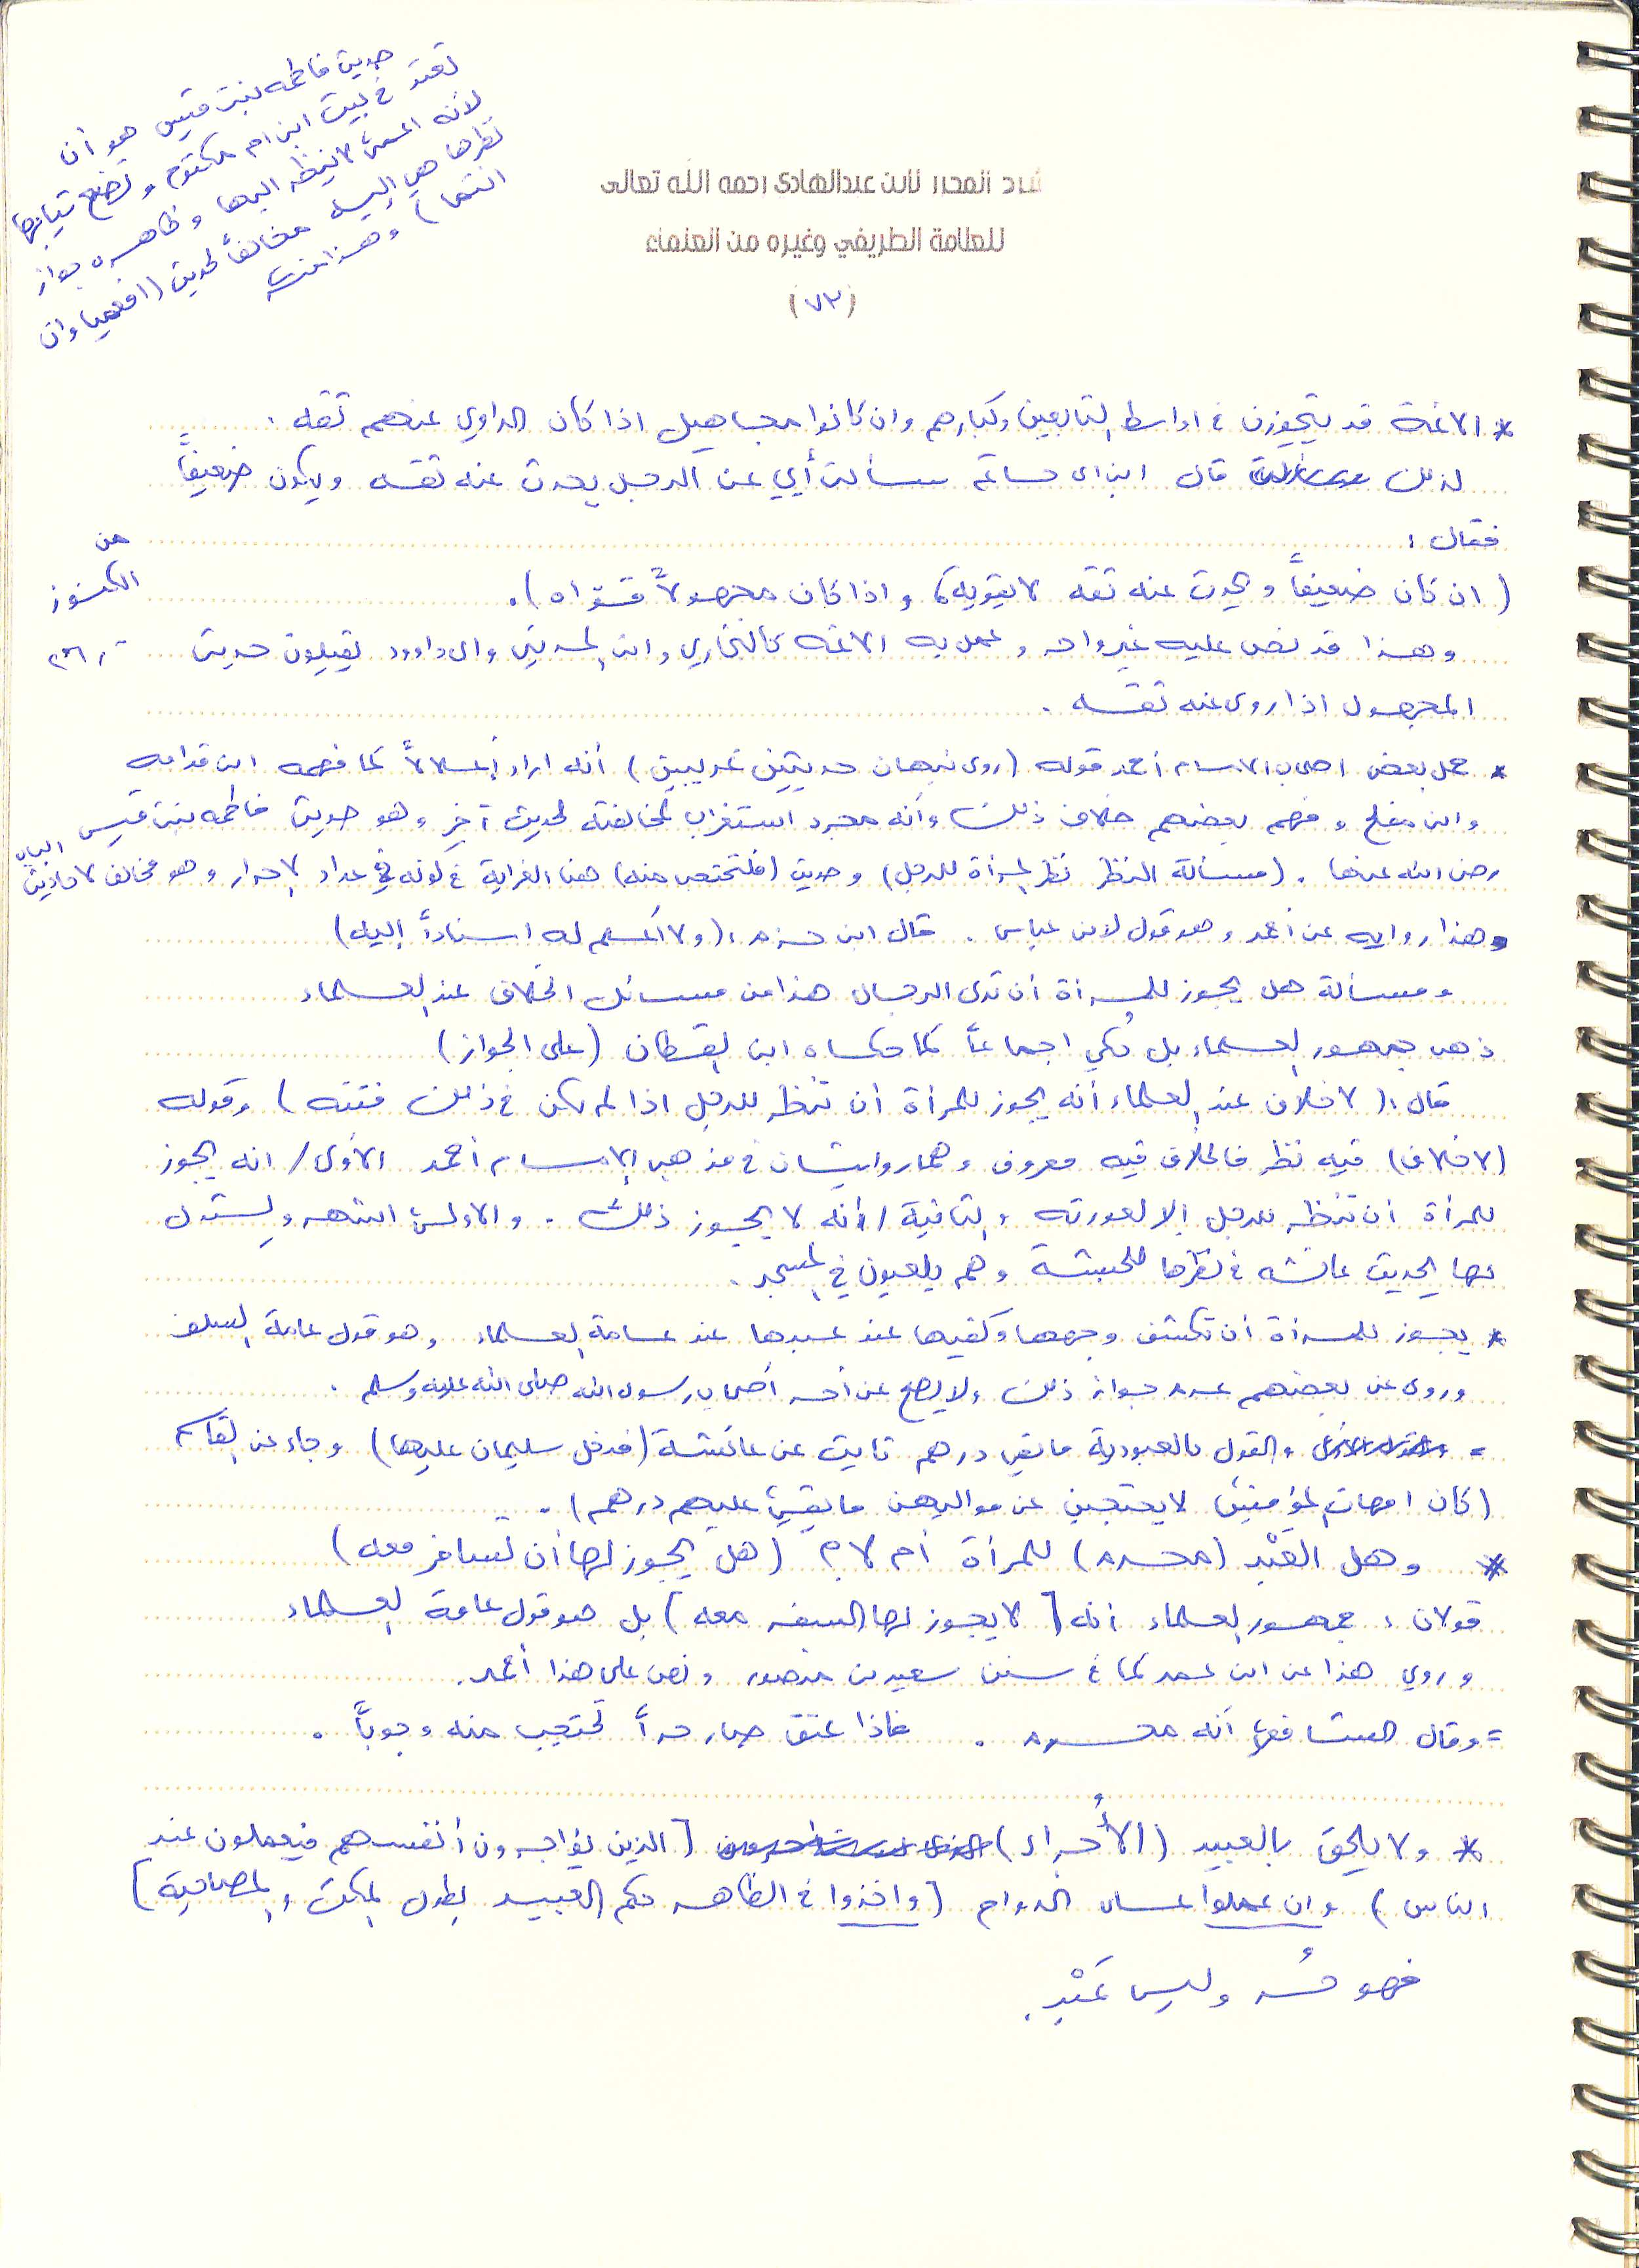 حديث فاطمه بنت قيس هو أن
تعتد في بيت ابن ام مكتوم وتضع ثيابها
لأنه اعمى لا ينظر اليها وظاهره جواز
نظرها هي إليه مخالفاً لحديث (افعميا وان
انتما) وهذا
المحرر لابن عبدالهادي رحمه الله تعالى
للعلامة الطريفي وغيره من العلماء
(٧٣)
* الائمة قد يتجوزون في اواسط التابعين وكبارهم وان كانوا مجاهيل اذا كان الراوي عنهم ثقه .
لذلك قال ابن ابي حاتم سألت أبي عن الرجل يحدث عنه ثقه ويكون ضعيفاً
فقال :
(ان كان ضعيفاً ويحدث عنه ثقه لا يقويه، واذا كان مجهولاً قواه).
من
وهذا قد نص عليه غير واحد وعمل به الائمه كالبخاري وابن المديني وابي داوود يقبلون حديث
المجهول اذا روى عنه ثقه .
* حمل بعض اصحاب الامام أحمد قوله (روى نبهان حديثين غريبين) أنه اراد إعلالاً كما فهمه ابن قدامه
وابن مفلح وفهم بعضهم خلاف ذلك وأنه مجرد استغراب لمخالفته لحديث آخر وهو حديث فاطمه بنت قيس
رضي الله عنها . (مسألة النظر نظر المرأة للرجل) وحديث (فلتحتجب منه) هنا الغرابة في كونه في عداد الاحرار وهو مخالف لاحاديث الباب
وهذا روايه عن أحمد وهو قول لابن عباس . قال ابن حزم: (ولا أعلم له اسناداً إليه)
ومسألة هل يجوز للمرأة أن ترى الرجال هذا من مسائل الخلاف عند العلماء
ذهب جمهور العلماء بل حُكي اجماعاً كما حكاه ابن القطان (على الجواز)
قال: (لا خلاف عند العلماء أنه يجوز للمرأة أن تنظر للرجل اذا لم يكن في ذلك فتنه) وقوله
(لا خلاف) فيه نظر فالخلاف فيه معروف وهما روايتان في مذهب الامام أحمد الأولى / انه يجوز
للمرأة ان تنظر للرجل إلا لعورته والثانية / أنه لا يجوز ذلك . والاولى اشهر ويستدل
لها بحديث عائشه في نظرها للحبشة وهم يلعبون في المسجد .
* يجوز للمرأة ان تكشف وجهها وكفيها عند عبدها عند عامة العلماء وهو قول عامة السلف
وروي عن بعضهم عدم جواز ذلك ولا يصح عن أحد أصحاب رسول الله صلى الله عليه وسلم .
= والقول بالعبودية ما بقي درهم ثابت عن عائشة (فدخل سليمان عليها) وجاء عن القاسم
(كان امهات المؤمنين لا يحتجبن عن مواليهن ما بقي عليهم درهم) .
* وهل العَبْد (محرم) للمرأة أم لا؟ (هل يجوز لها أن تسافر معه)
قولان : جمهور العلماء أنه [لا يجوز لها السفر معه] بل هو قول عامة العلماء
وروي هذا عن ابن عمر كما في سنن سعيد بن منصور ونص على هذا أحمد.
= وقال الشافعي أنه محرم . فاذا عتق صار حراً تحتجب منه وجوباً .
* ولا يلحق بالعبيد (الأُجراء) [الذين يؤاجرون أنفسهم فيعملون عند
الناس) وان عملوا على الدوام [واخذوا في الظاهر حكم العبيد بطول المكث والمصاحبة]
فهو حُر وليس عَبْد.